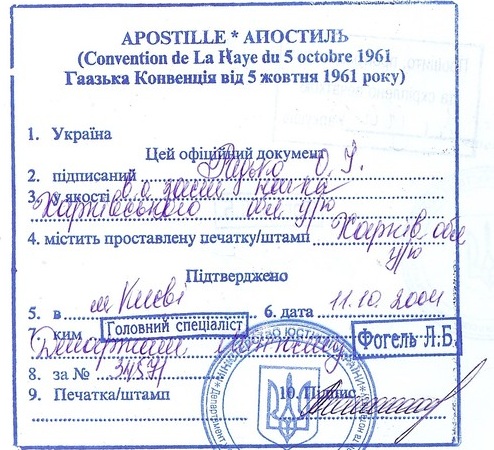 APOSTILLE * АПОСТИЛЬ
(Convention de La Haye du 5 octobre 1961
Гаазька Конвенція від 5 жовтня 1961 року)
1. Україна
Цей офіційний документ
2. підписаний О.
3. у якості в.о. заст.
Харківського обл. упр.
4. містить проставлену печатку/штамп Харків. обл.
упр.
Підтверджено
5. в м. Києві 6. дата 11.10.2004
7. ким Головний спеціаліст Фогель Л.Б.
Департамент
8. за №
9. Печатка/штамп 10. Підпис
МІНІСТЕРСТВО ЮСТИЦІЇ УКРАЇНИ